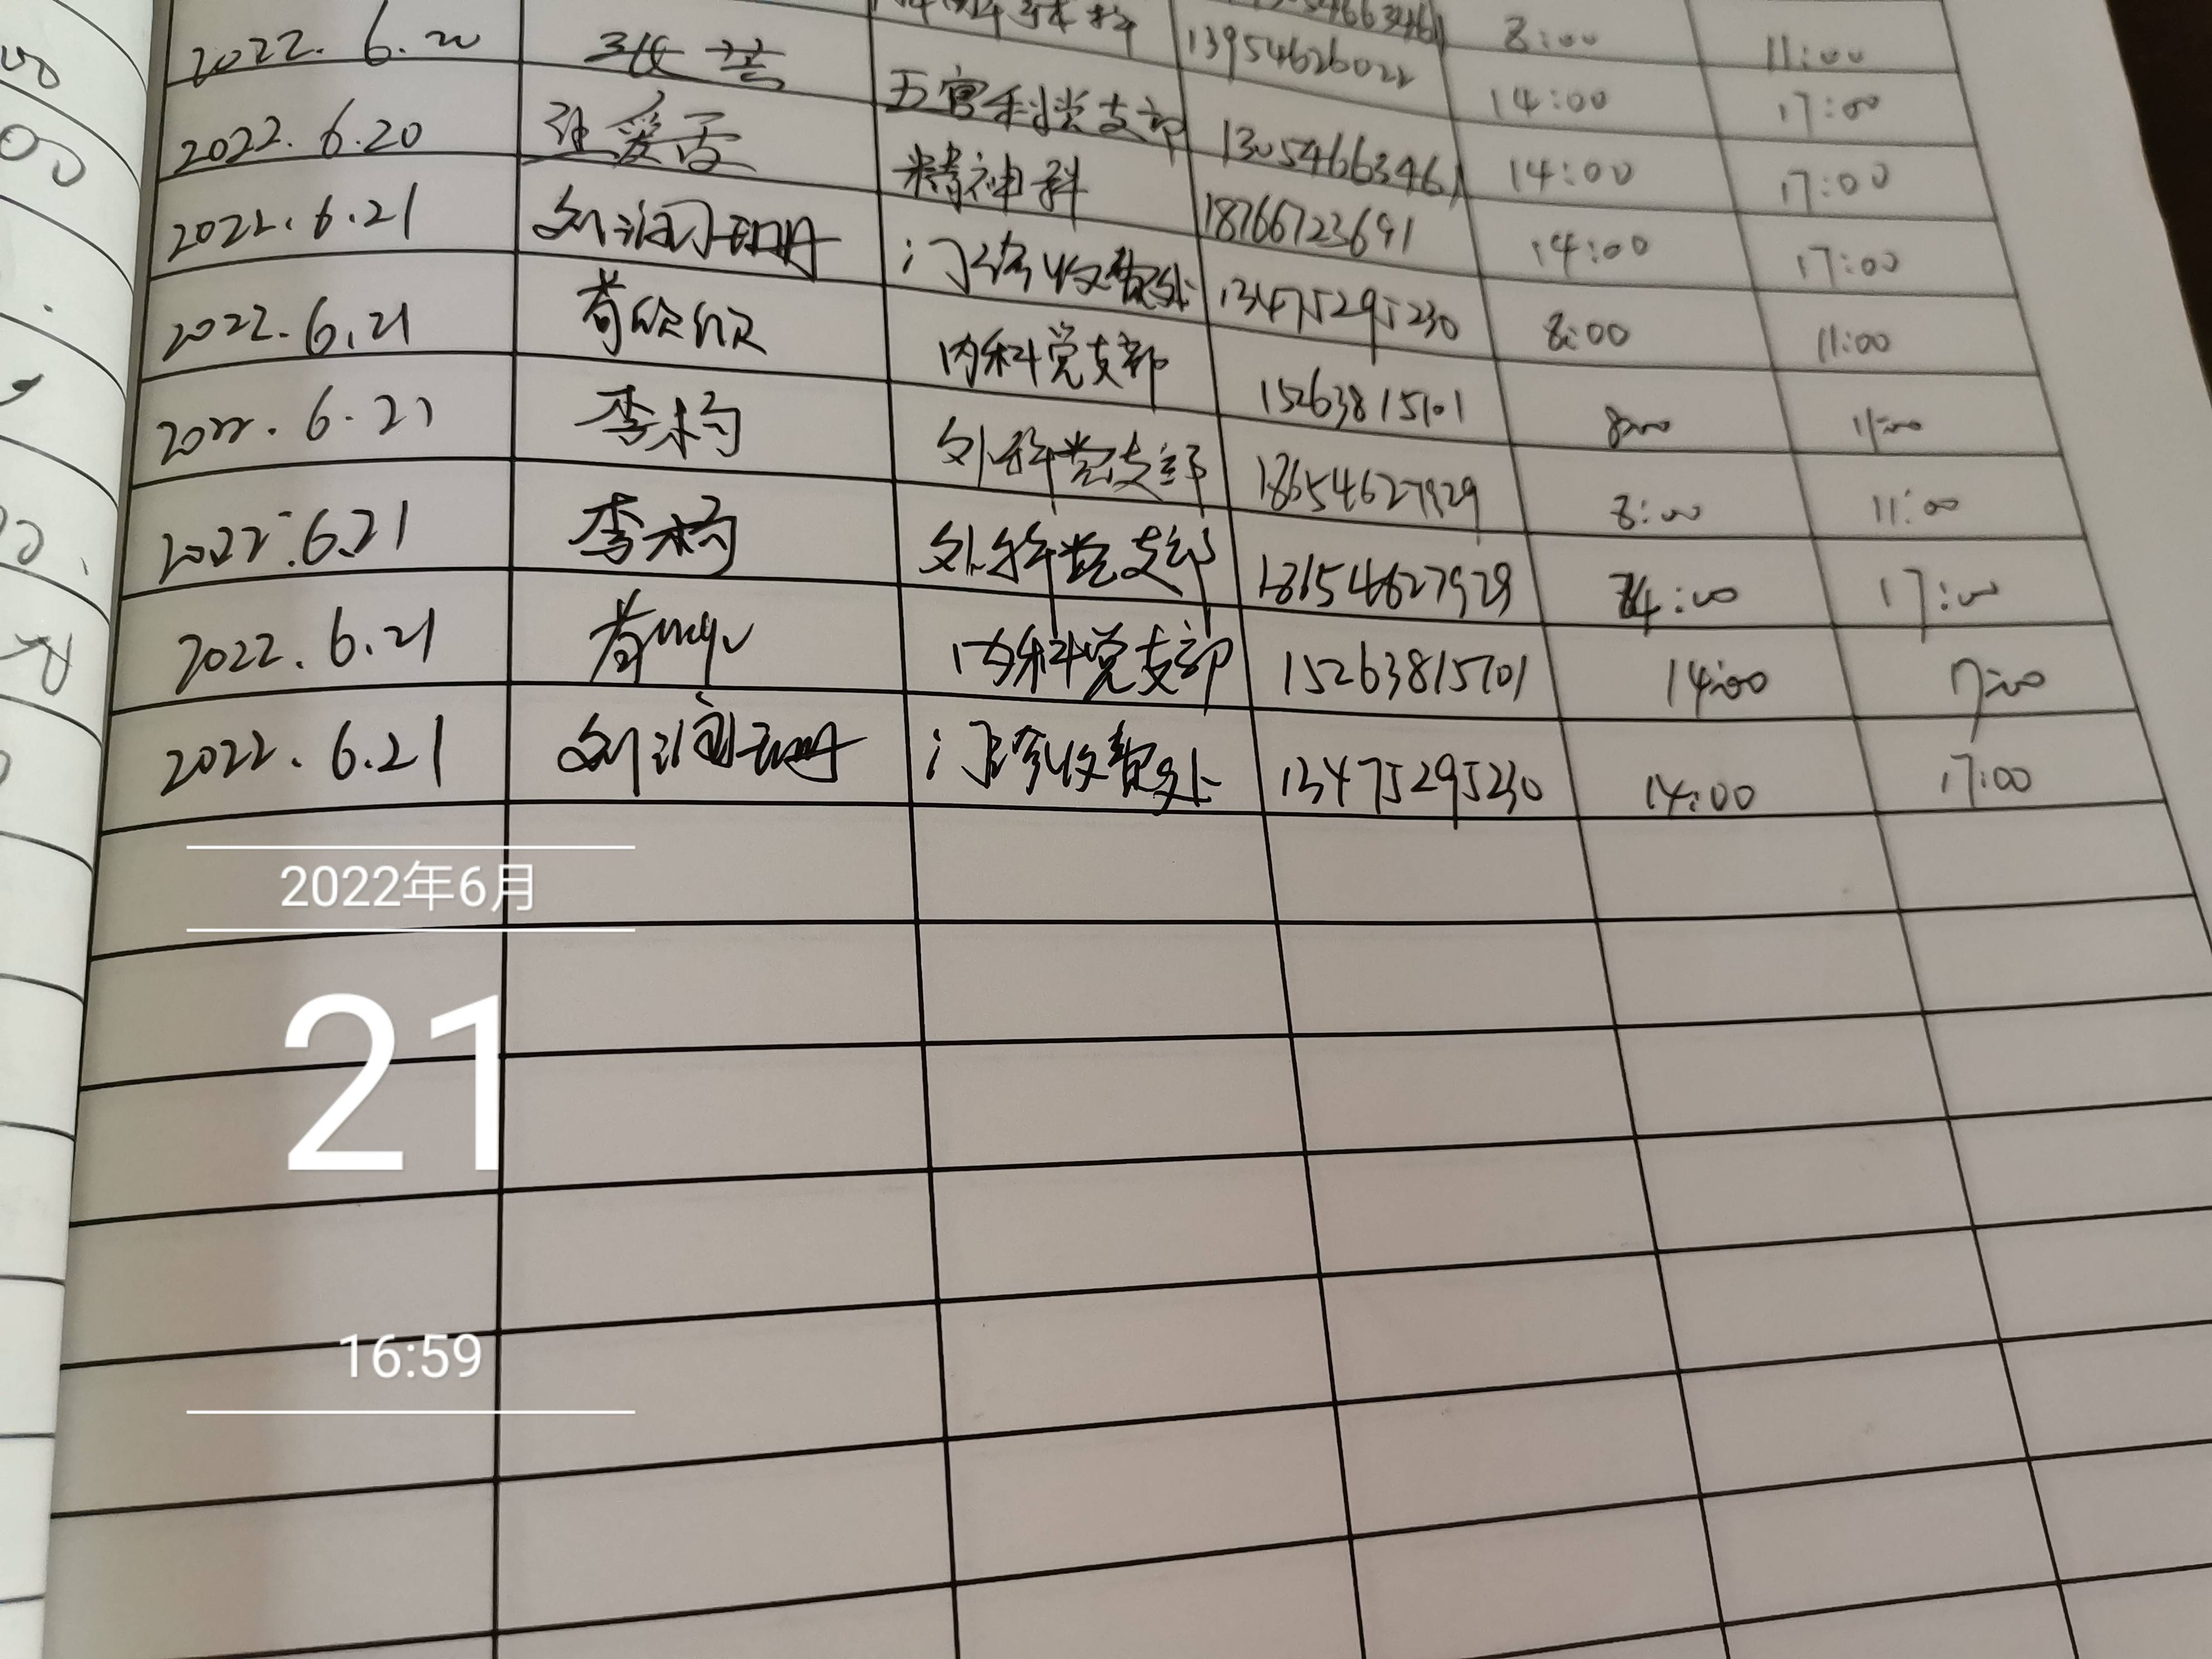 8:00 11:00
13954626022 14:00 17:00
2022.6.20 五官科党支部 13054663461 14:00 17:00
2022.6.20 张爱雪 精神科 18766723691 14:00 17:00
2022.6.21 刘润珊 门诊收费处 13475295230 8:00 11:00
2022.6.21 荀欣欣 内科党支部 15263815701 8:00 11:00
2022.6.21 李杓 外科党支部 18654627929 8:00 11:00
2022.6.21 李杓 外科党支部 18654627929 14:00 17:00
2022.6.21 荀 内科党支部 15263815701 14:00 17:00
2022.6.21 刘润珊 门诊收费处 13475295230 14:00 17:00
2022年6月
21
16:59